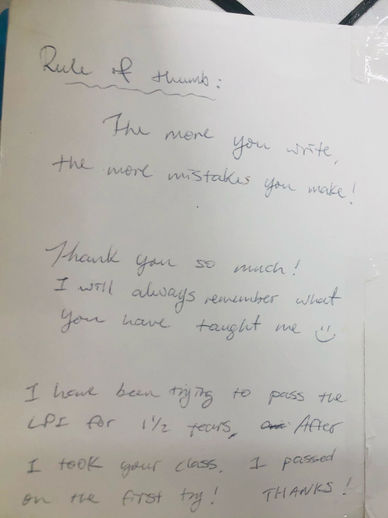 Rule of thumb:
The more you write,
the more mistakes you make!
Thank you so much!
I will always remember what
you have taught me
I have been trying to pass the
LPI for 1 1/2 years, After
I took your class, I passed
on the first try! THANKS!